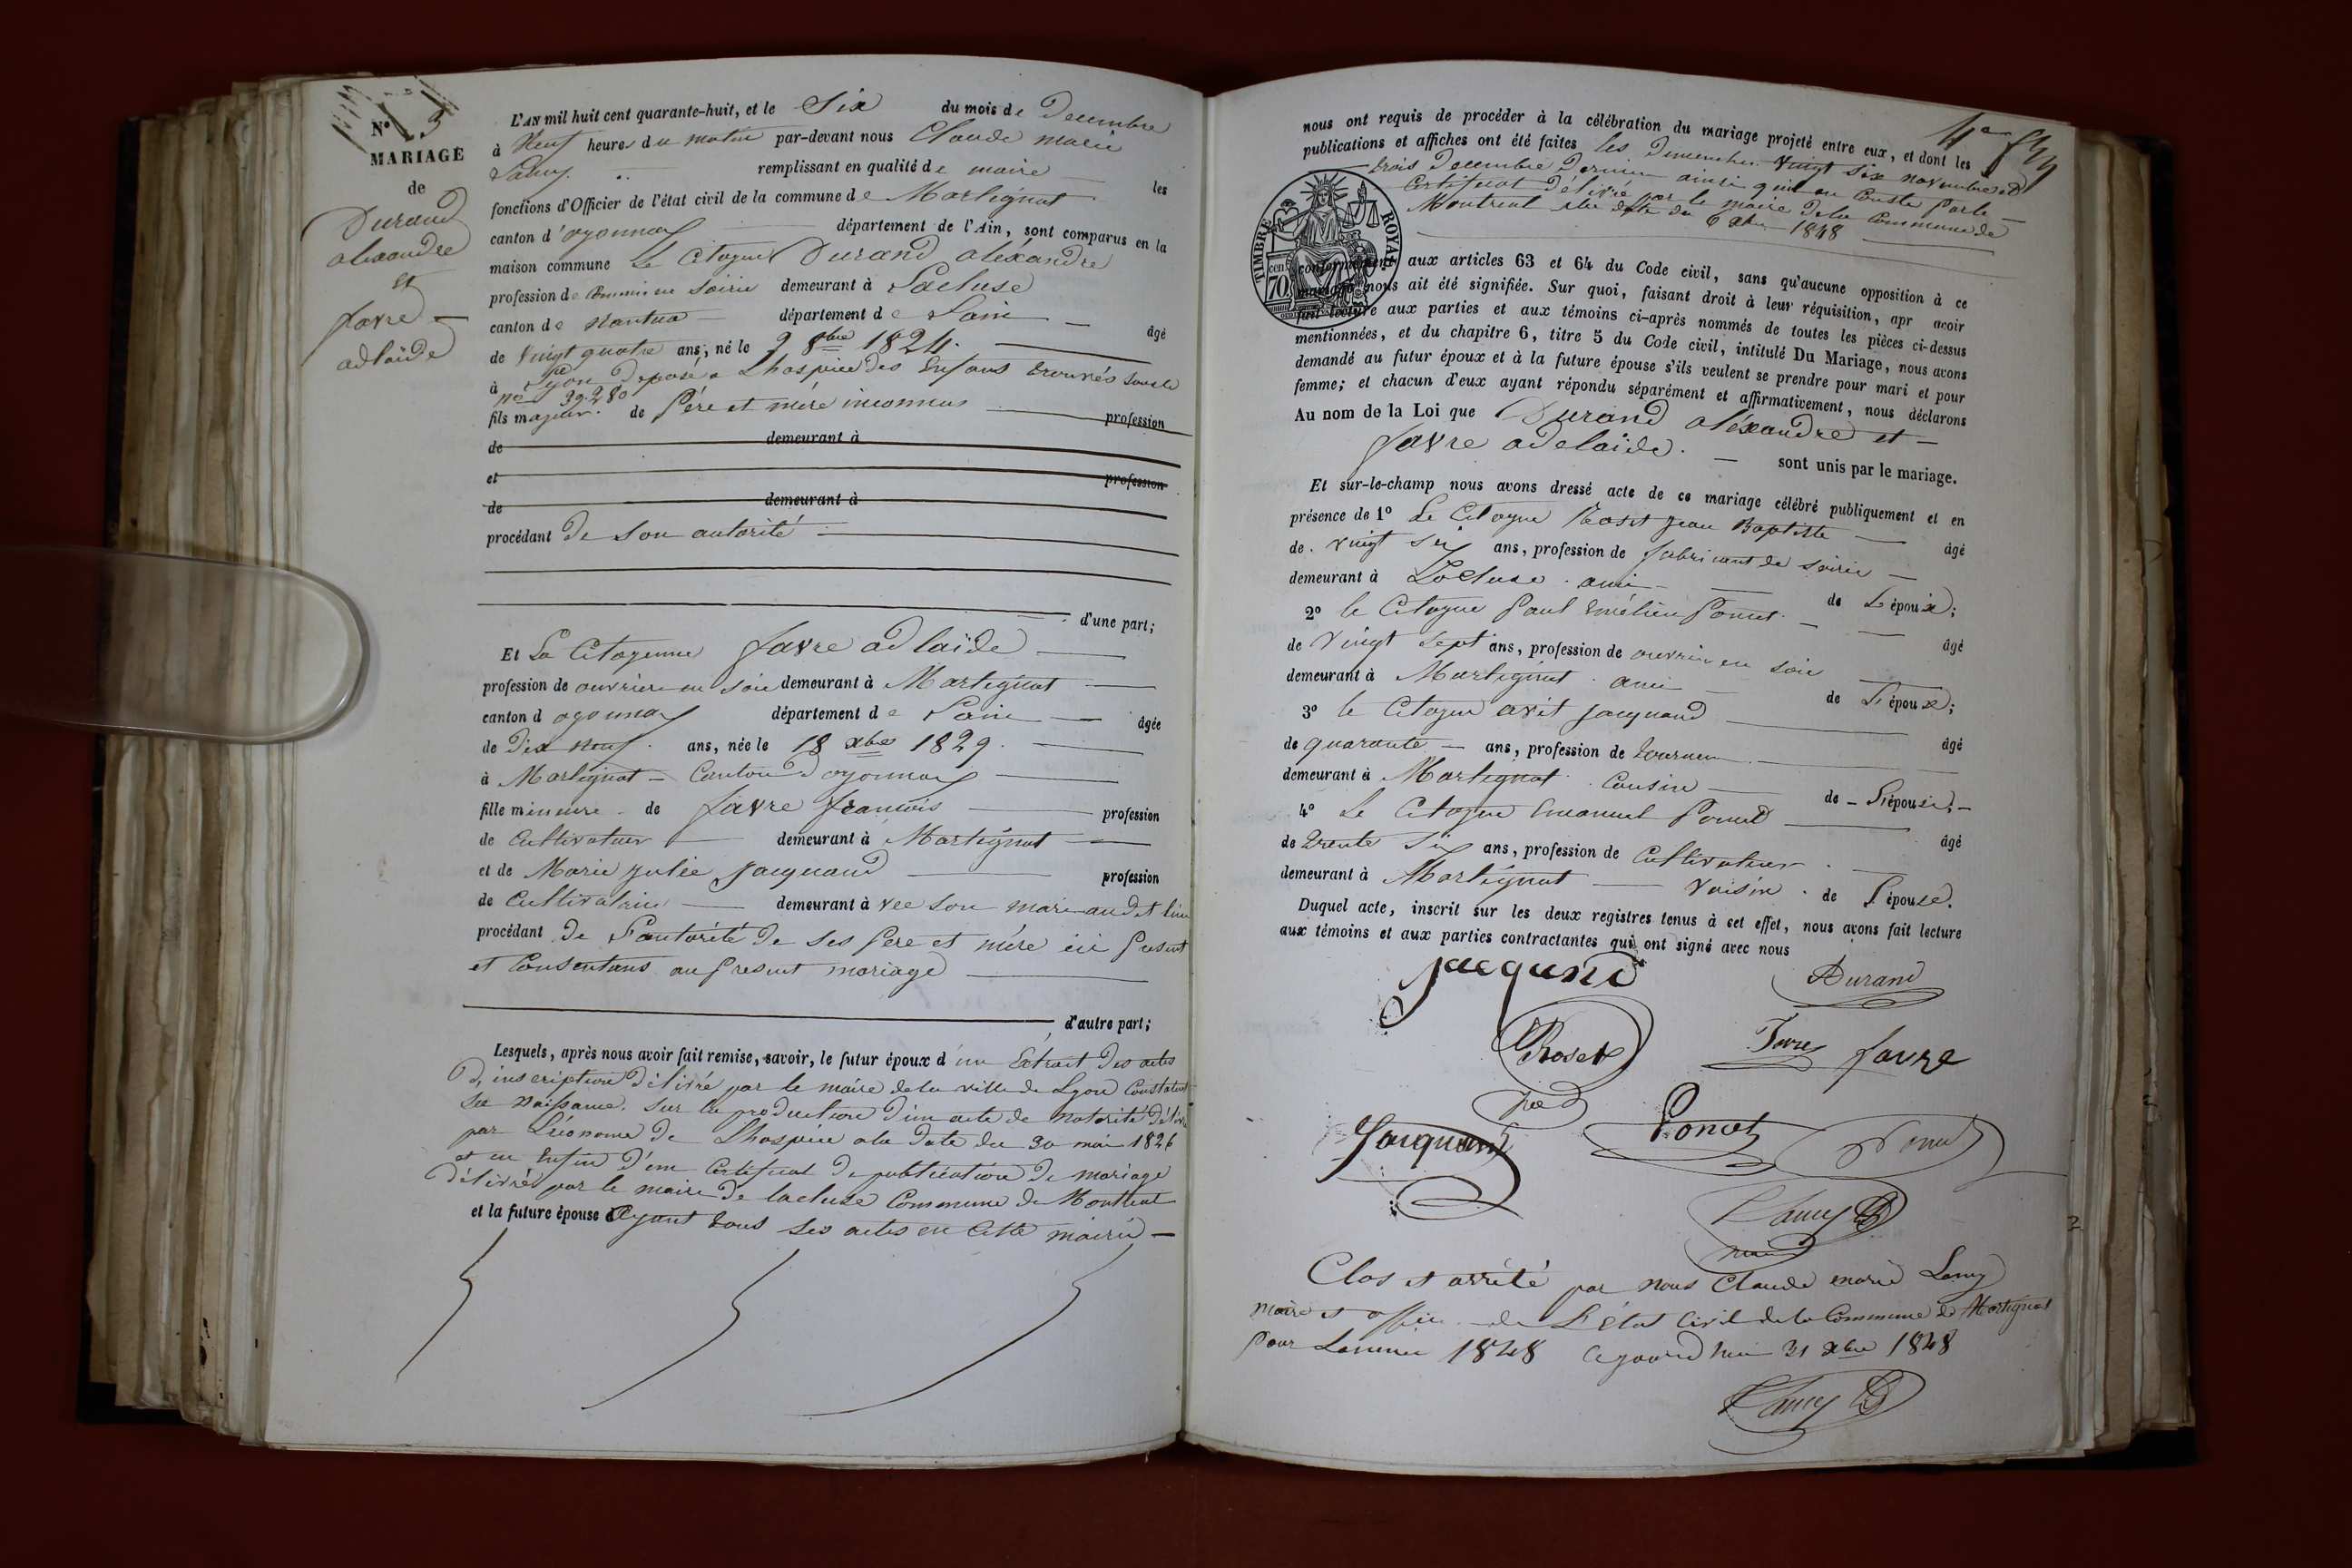 N° 13
MARIAGE
de
Durand
alexandre
et
favre
adlaïde
L'AN mil huit cent quarante-huit, et le Six du mois de Decembre
à Neuf heures du matin par-devant nous Claude Marie
Lamy remplissant en qualité de maire les
fonctions d'Officier de l'état civil de la commune de Martignat
canton d'oyonnax département de l'Ain, sont comparus en la
maison commune Le Citoyen Durand aléxandre
profession de Commis en Soirie demeurant à Lacluse
canton de Nantua département de Lain âgé
de Vingt quatre ans, né le 2 8bre 1824.
à Lyon Déposé a Lhospice des Enfans trouvés sous le
no 39280
fils majeur. de Père et mére inconnus profession
de demeurant à
et profession
de demeurant à
procédant De Son autorité
d'une part;
Et La Citoyenne favre adlaïde
profession de ouvriere en Soie demeurant à Martignat
canton d oyonnax département de Lain âgée
de Dix Neuf. ans, née le 18 xbre 1829.
à Martignat Canton D'oyonnax
fille mineure de favre francois profession
de Cultivateur demeurant à Martignat
et de Marie Julie Jacquand profession
de Cultivatrice demeurant à vec Son mari audit lieu
procédant De L'autorité De Ses Pere et mére ici Present
et Consentans au Present mariage
d'autre part;
Lesquels, après nous avoir fait remise, savoir, le futur époux d'un Extrait Des actes
D'inscription Délivré par le maire de la ville de Lyon Constatant
Sa Naissance. Sur la production D'un acte de Notorité Délivré
par L'économe De Lhospice a la Date du 30 mai 1826
et en Enfin D'un Certificat De publication De mariage
Délivré par le maire De lacluse Commune de Montreal
et la future épouse Ayant tous Ses actes en Cette mairie
4e f
nous ont requis de procéder à la célébration du mariage projeté entre eux, et dont les
publications et affiches ont été faites les Dimenches Vingt Six Novembre et
trois Decembre Dernier ainsi qu'il en Conste par le
Certificat Délivré par le maire De la Commune de
Montreal a la date du 6 xbre 1848
TIMBRE ROYAL
70 cen
conformément aux articles 63 et 64 du Code civil, sans qu'aucune opposition à ce
mariage nous ait été signifiée. Sur quoi, faisant droit à leur réquisition, apr avoir
fait lecture aux parties et aux témoins ci-après nommés de toutes les pièces ci-dessus
mentionnées, et du chapitre 6, titre 5 du Code civil, intitulé Du Mariage, nous avons
demandé au futur époux et à la future épouse s'ils veulent se prendre pour mari et pour
femme; et chacun d'eux ayant répondu séparément et affirmativement, nous déclarons
Au nom de la Loi que Durand aléxandre et
favre adelaïde. sont unis par le mariage.
Et sur-le-champ nous avons dressé acte de ce mariage célébré publiquement et en
présence de 1° Le Citoyen Roset Jean Baptiste âgé
de Vingt Six ans, profession de fabricant de Soirie
demeurant à Lacluse. ami de L'époux;
2° le Citoyen Paul Emélien Poncet. âgé
de Vingt Sept ans, profession de ouvrier en Soie
demeurant à Martignat. ami de L'époux;
3° le Citoyen avit Jacquand âgé
de quarante ans, profession de tourneur
demeurant à Martignat. Cousin de L'épouse;
4° Le Citoyen Emanuel Poncet âgé
de trente Six ans, profession de Cultivateur
demeurant à Martignat Voisin. de L'épouse.
Duquel acte, inscrit sur les deux registres tenus à cet effet, nous avons fait lecture
aux témoins et aux parties contractantes qui ont signé avec nous
Jacquand Durand
Roset favre favre
Jacquand Poncet Poncet
Lamy
Clos et arrété par nous Claude marie Lamy
maire et officier de L'état Civil de la Commune de Martignat
Pour Lannée 1848 Cejourd'hui 31 xbre 1848
Lamy